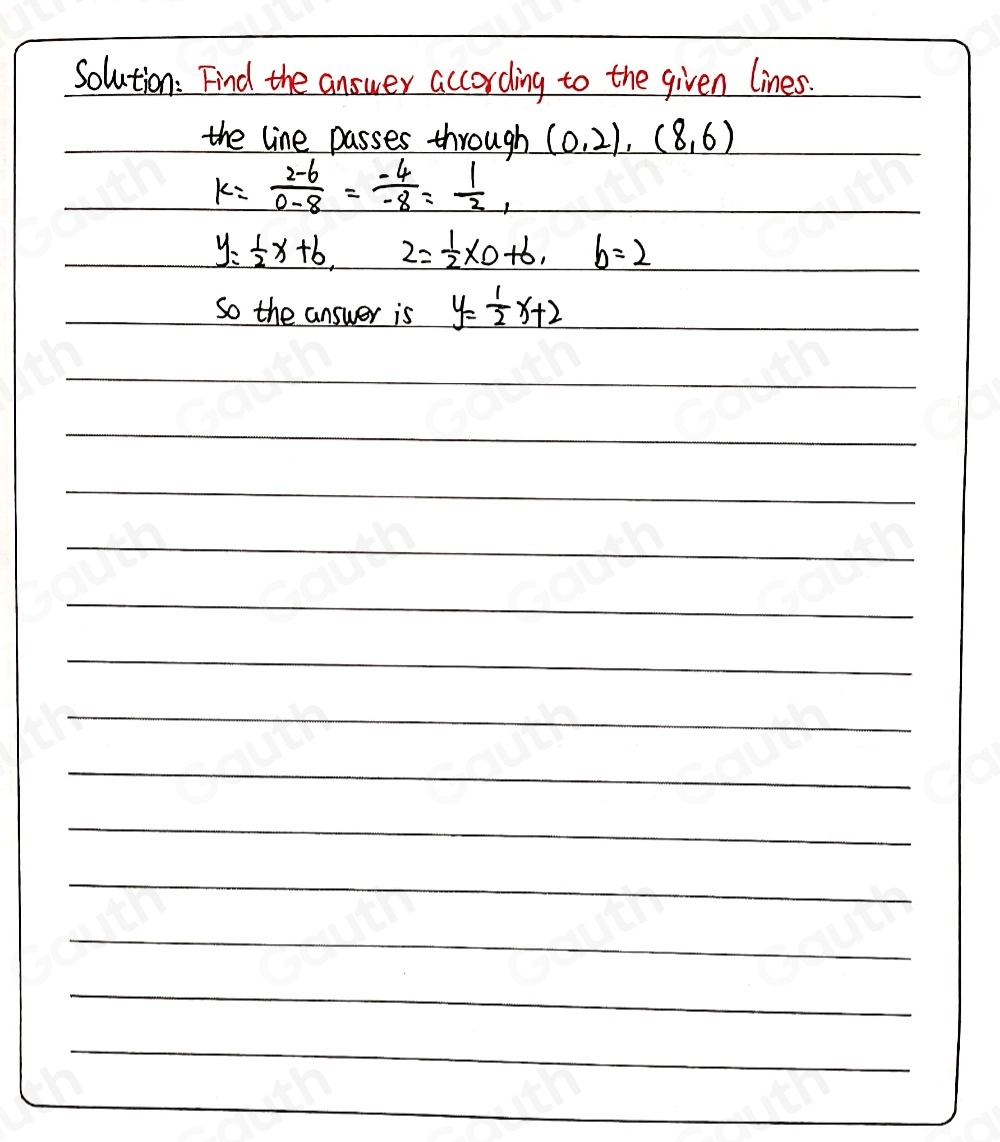 Solution: Find the answer according to the given lines.
the line passes through (0,2), (8,6)
k= \frac{2-6}{0-8} = \frac{-4}{-8} = \frac{1}{2},
y= \frac{1}{2}x+b, 2= \frac{1}{2}×0+b, b=2
So the answer is y= \frac{1}{2}x+2
Gauth